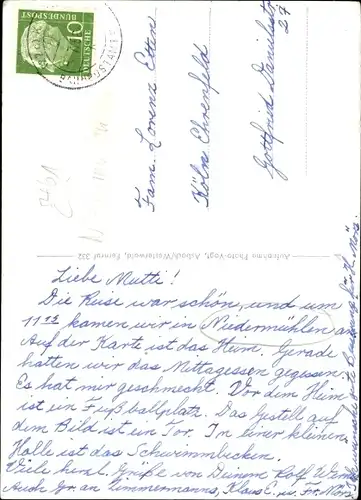 10
DEUTSCHE
BUNDESPOST
Fam. Lorenz Etten
Köln Ehrenfeld
Gottfried
27
Aufnahme Photo-Vogt, Asbach/Westerwald, Fernruf 332
Liebe Mutti!
Die Reise war schön, und um
11 15 kamen wir in Niedermühlen an
Auf der Karte ist das Heim. Gerade
hatten wir das Mittagessen gegessen.
Es hat mir geschmeckt. Vor dem Heim
ist ein Fußballplatz. Das Gestell auf
dem Bild ist ein Tor. In einer kleinen
Halle ist das Schwimmbecken.
Viele herzl. Grüße von Deinem Rolf
Auch Gr. an Zimmermanns, Klaus E. u. Fr.